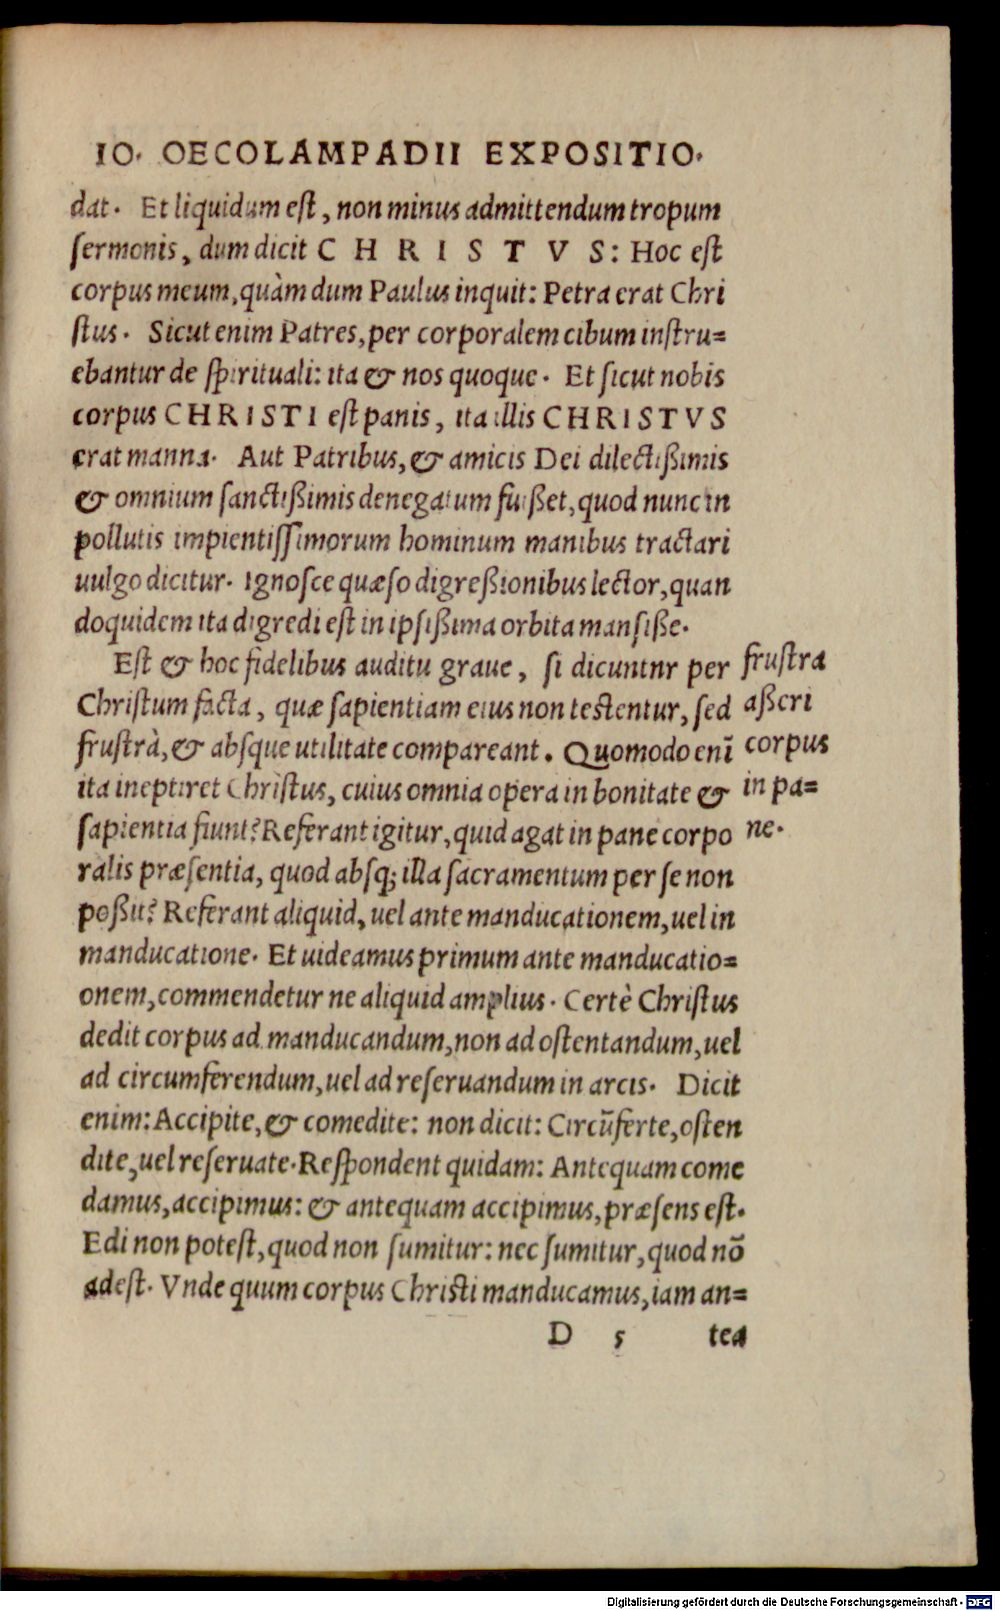 IO. OECOLAMPADII EXPOSITIO.
dat. Et liquidum est, non minus admittendum tropum
sermonis, dum dicit C H R I S T V S: Hoc est
corpus meum, quàm dum Paulus inquit: Petra erat Chri
stus. Sicut enim Patres, per corporalem cibum instru=
ebantur de spirituali: ita & nos quoque. Et sicut nobis
corpus CHRISTI est panis, ita illis CHRISTVS
erat manna. Aut Patribus, & amicis Dei dilectißimis
& omnium sanctißimis denegatum fuißet, quod nunc in
pollutis impientissimorum hominum manibus tractari
uulgo dicitur. Ignosce quæso digreßionibus lector, quan
doquidem ita digredi est in ipsißima orbita mansiße.
Est & hoc fidelibus auditu graue, si dicuntnr per
Christum facta, quæ sapientiam eius non testentur, sed
frustrà, & absque utilitate compareant. Quomodo enĩ
ita ineptiret Christus, cuius omnia opera in bonitate &
sapientia fiunt? Referant igitur, quid agat in pane corpo
ralis præsentia, quod absq; illa sacramentum per se non
poßit? Referant aliquid, uel ante manducationem, uel in
manducatione. Et uideamus primum ante manducatio=
onem, commendetur ne aliquid amplius. Certè Christus
dedit corpus ad manducandum, non ad ostentandum, uel
ad circumferendum, uel ad reseruandum in arcis. Dicit
enim: Accipite, & comedite: non dicit: Circũferte, osten
dite, uel reseruate. Respondent quidam: Antequam come
damus, accipimus: & antequam accipimus, præsens est.
Edi non potest, quod non sumitur: nec sumitur, quod nõ
adest. Vnde quum corpus Christi manducamus, iam an=
D 5 tea
frustra
aßeri
corpus
in pa=
ne.
Digitalisierung gefördert durch die Deutsche Forschungsgemeinschaft - DFG